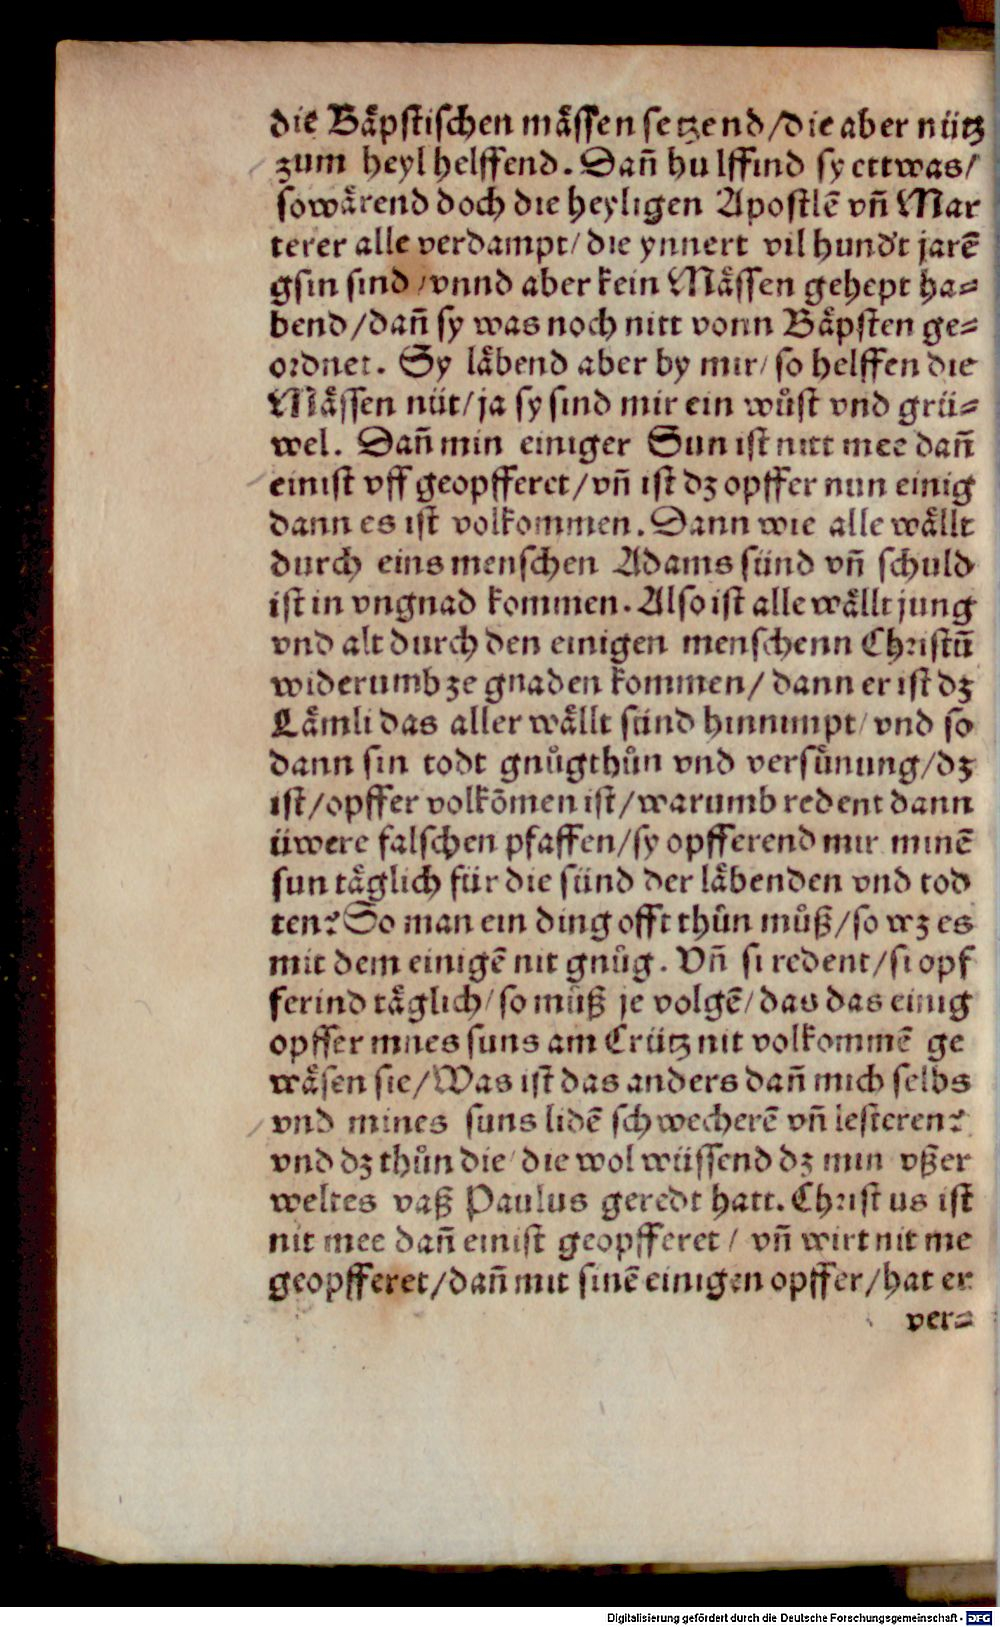 die Bäpstischen mässen setzend/die aber nütz
zum heyl helffend. Dañ hulffind sy ettwas/
sowärend doch die heyligen Apostlē vñ Mar
terer alle verdampt/die ynnert vil hundt jarē
gsin sind/vnnd aber kein Mässen gehept ha⸗
bend/dañ sy was noch nitt vonn Bäpsten ge⸗
ordnet. Sy läbend aber by mir/so helffen die
Mässen nüt/ja sy sind mir ein wuͤst vnd grü⸗
wel. Dañ min einiger Sun ist nitt mee dañ
einist vff geopfferet/vñ ist dz opffer nun einig
dann es ist volkommen. Dann wie alle wällt
durch eins menschen Adams sünd vñ schuld
ist in vngnad kommen. Also ist alle wällt jung
vnd alt durch den einigen menschenn Christū
widerumb ze gnaden kommen/dann er ist dz
Lämli das aller wällt sünd hinnimpt/vnd so
dann sin todt gnůgthůn vnd versuͤnung/dz
ist/opffer volkōmen ist/warumb redent dann
üwere falschen pfaffen/sy opfferend mir minē
sun täglich für die sünd der läbenden vnd tod
ten? So man ein ding offt thůn můß/so wz es
mit dem einigē nit gnůg. Vñ si redent/si opf
ferind täglich/so můß je volgē/das das einig
opffer mines suns am Crütz nit volkommē ge
wäsen sie/Was ist das anders dañ mich selbs
vnd mines suns lidē schwecherē vñ lesteren?
vnd dz thůn die/die wol wüssend dz min vßer
weltes vaß Paulus geredt hatt. Christus ist
nit mee dañ einist geopfferet/vñ wirt nit me
geopfferet/dañ mit sinē einigen opffer/hat er
ver⸗
Digitalisierung gefördert durch die Deutsche Forschungsgemeinschaft - DFG